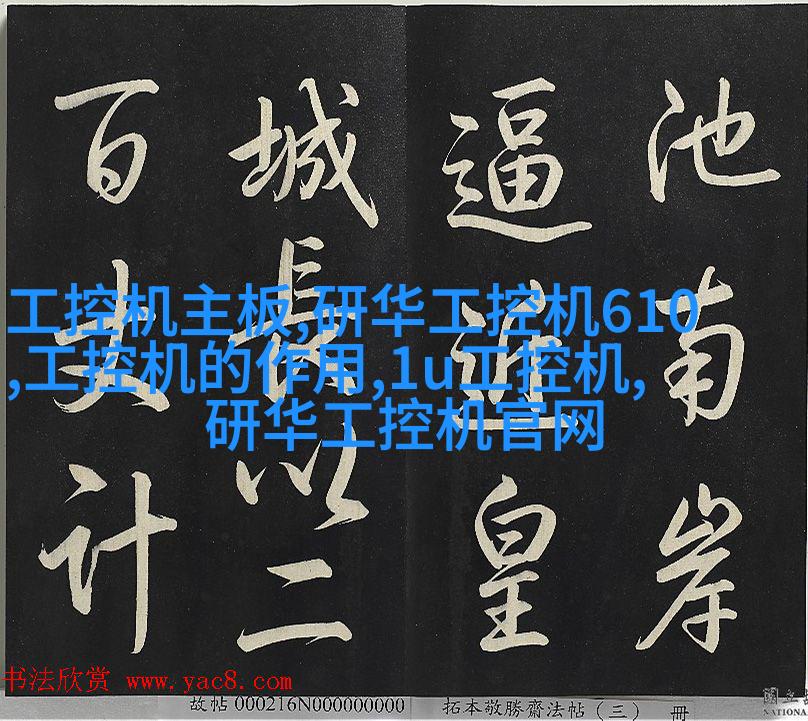 池南岸
逼皇
城長以二
百丈計
工控机主板,研华工控机610
,工控机的作用,1u工控机,
研华工控机官网
书法欣赏 www.yac8.com
故帖 000216N000000000 拓本敬勝齋法帖（三） 冊
國立
NATIONA